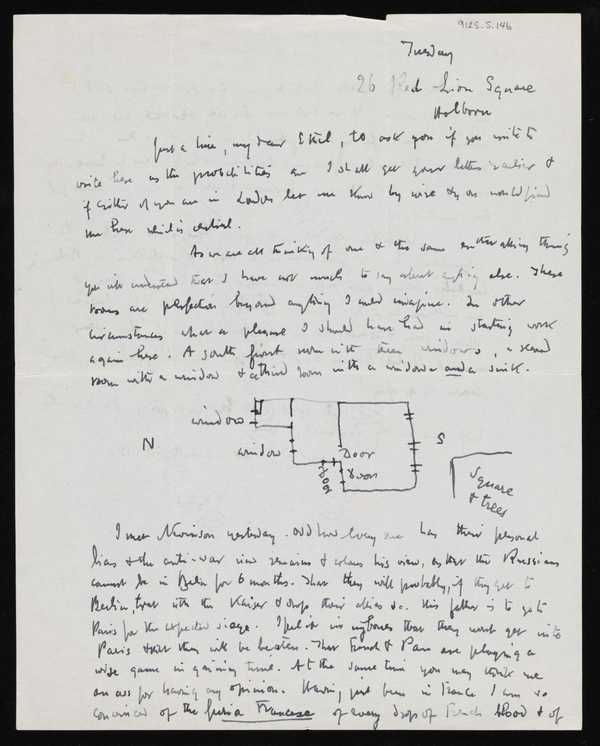 9125.5.146
Tuesday
26 Red Lion Square
Holborn
Just a line, my dear Ethel, to ask you if you write to
write here as the probabilities are I shall get your letters earlier &
if either of you are in London let me know by wire & you would find
me here which is central.
As we are all thinking of one & the same enthralling thing
you will understand that I have not much to say about anything else. These
rooms are perfection beyond anything I could imagine. In other
circumstances what a pleasure I should have had in starting work
again here. A south front room with three windows, a second
room with a window & a third room with a window and a sink.
window
N window Door S
Door Door
Square
& trees
I met Nevinson yesterday. Odd how every one has their personal
bias & the anti-war view remains & colours his view, as that the Russians
cannot be in Berlin for 6 months. That they will probably, if they get to
Berlin, treat with the Kaiser & drop their allies &c. His father is to go to
Paris for the expected siege. I feel it in my bones that they won't get into
Paris & that they will be beaten. That French & Pau are playing a
wise game in gaining time. At the same time you may think me
an ass for having any opinion. Having just been in France I am so
convinced of the furia Francese of every drop of French blood & of